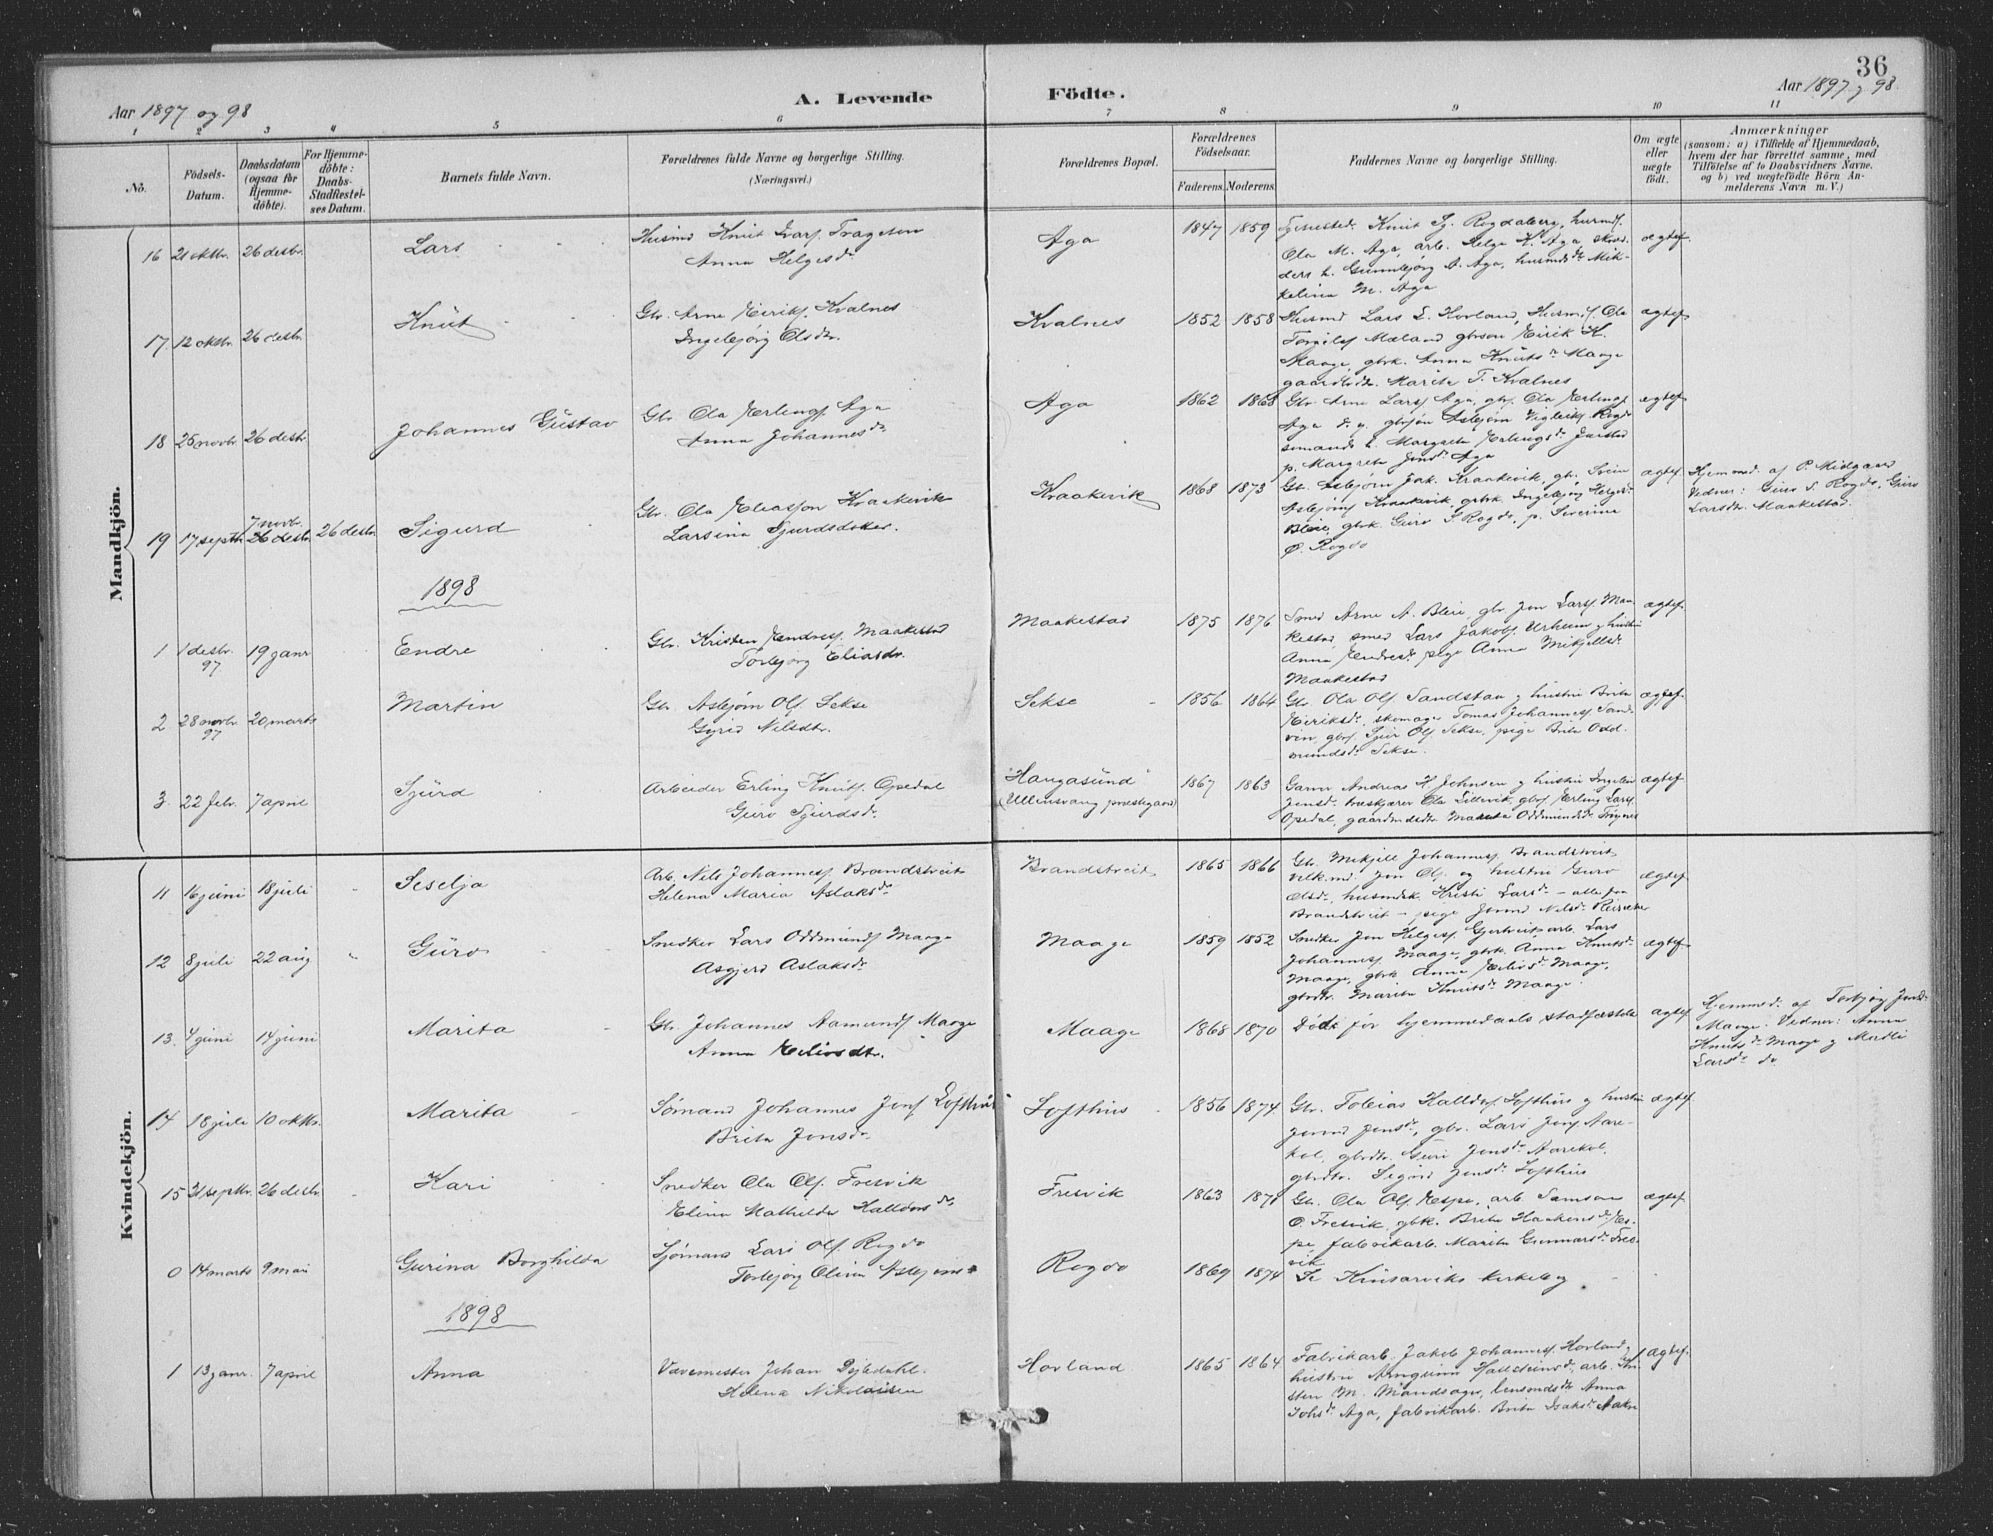 36
Aar 1897 og 98
A. Levende
Födte.
Aar 1897 og 98
1 2 3 4 5 6 7 8 9 10 11
No.
Födsels-
Datum.
Daabsdatum
(ogsaa for
Hjemme-
döbte).
For Hjemme-
döbte:
Daabs-
Stadfæstel-
ses Datum.
Barnets fulde Navn.
Forældrenes fulde Navne og borgerlige Stilling.
(Næringsvei.)
Forældrenes Bopæl.
Forældrenes
Födselsaar.
Faderens. Moderens.
Faddernes Navne og borgerlige Stilling.
Om ægte
eller
uægte
födt.
Anmærkninger
(saasom: a) i Tilfælde af Hjemmedaab,
hvem der har forrettet samme, med
Tilföielse af to Daabsvidners Navne.
og b) ved uægtefödte Börn An-
melderens Navn m. V.)
Mandkjön.
16 21 oktbr. 26 desbr. Lars
Husmd Knut Ivars. Tragetun
Anna Helgesdr.
Aga 1847 1859
Tjenestedr. Knut Sj. Rogdaberg, husmds.
Ola M. Aga, arb. Helge K. Aga, skræd-
ders k. Gunnbjørg A. Aga, husmdsdr. Mik-
kelina M. Aga
ægtef.
17. 12 oktbr. 26 desbr. Knut
Gbr. Arne Eiriks. Kvalnes
Ingebjørg Olsdtr.
Kvalnes 1852 1858
Husmd Lars L. Hovland, Husmds. Ola
Torgils Mæland gbrsøn Eirik K.
Maage, gbrk. Anna Knutsdr. Maage
gaardbdtr. Marita T. Kvalnes
ægtef.
18 25 novbr. 26 desbr. Johannes Gustav
Gbr. Ola Erlings. Aga
Anna Johannesdr.
Aga 1862 1868
Gbr. Arne Lars. Aga, gbr. Ola Erlings.
Aga d. y. gbrsøn Asbjørn Vigleiks. Rogdo
sømands k. Margreta Erlingsdr. Jaastad
p. Margreta Jonsdr. Aga
ægtef.
19 17 septbr. 7 novbr. 26 desbr. 26 desbr. Sigurd
Gbr. Ola Eliasson Kraakevik
Larsina Sjurdsdotter.
Kraakevik 1868 1873
Gbr. Asbjørn Jak. Kraakevik, gbr. Svein
Asbjørns. Kraakevik, gbrk. Ingebjørg Helgesdr.
Bleie, gbrk. Guro S. Rogdo, p. Severina
O. Rogdo
ægtef.
Hjemmed. af P. Midgaard
Vidner: Guro S. Rogdo, Guro
Larsdr. Maakestad.
1898
1 1 desbr. 97 19 janr. Endre
Gbr. Kristen Endres. Maakestad
Torbjørg Eliasdr.
Maakestad 1875 1876
Smed Arne A. Bleie, gbr Jon Lars. Maa-
kestad smed Lars Jakobs. Urheim og hustru
Anna Endresdr. pige Anna Mikjelsdr.
Maakestad
ægtef.
2 28 novbr. 97 20 marts Martin
Gbr. Asbjørn Ols. Sekse
Gyrid Nilsdtr.
Sekse 1856 1864
Gbr. Ola Ols. Sandstaa og hustru Brita
Eiriksdr. skomager Tomas Johannes. Sand-
ven, gbrs. Sjur Ols. Sekse, pige Brita Odd-
mundsdr. Sekse.
ægtef.
3. 22 febr. 7 april Sjurd
Arbeider Erling Knuts. Opedal
Guro Sjurdsdr.
"Haugasund"
(Ullensvang prestegaard)
1867 1863
Garver Andreas H. Johnsen og hustru Ingeleiv
Jonsdr. træskjærer Ola Lillevik, gbrs. Erling Lars.
Opedal, gaardmdsdtr. Marita Oddmundsdr. Trones
ægtef.
Kvindekjön.
11 16 juni 18 juli Seselja
Arb. Nils Johannes. Brandstveit
Helena Maria Aslaksdr.
Brandstveit 1865 1866
Gbr. Mikjell Johannes. Brandstveit,
velk.md. Jon Ols. og hustru Guro
Olsdr., husmdsk. Kristi Larsdr. – alle paa
Brandstveit – pige Jorund Nilsdr. Reisæter
ægtef.
12 8 juli 22 aug Guro
Snedker Lars Oddmunds. Maage
Asgjerd Aslaksdr.
Maage 1859 1852
Snedker Jon Helges. Gjertveit, arb. Lars
Johannes. Maage, gbrk. Anna Knutsdr.
Maage, gbrk Anna Eilivsdr. Maage,
gbrdtr. Marita Knutsdr. Maage.
ægtef.
13. 4 juni 14 juni Marita
Gbr. Johannes Aamunds. Maage
Anna Eilivsdtr.
Maage 1868 1870
Døde før hjemmedaabs stadfæstelse
ægtef.
Hjemmed. af Torbjørg Jonsdr.
Maage. Vidner: Anna
Knutsdr. Maage og Madli
Larsdr. do
14 18 juli 10 oktbr. Marita
Sømand Johannes Jons. Lofthus
Brita Jonsdr.
Lofthus 1856 1874
Gbr. Tobias Halldors. Lofthus og hustru
Jorund Jonsdr., gbr. Lars Jons. Aare-
kol, gbrdtr. Guri Jonsdr. Aarekol,
gbrdtr. Sigrid Jonsdr. Lofthus
ægtef.
15 21 septbr. 26 desbr. Kari
Snedker Ola Ols. Fresvik
Elina Mathilda Halldorsdr.
Fresvik 1863 1871
Gbr. Ola Ols. Espe, arb. Samson
O. Fresvik, gbk. Brita Haakonsdr. Es-
pe, fabrikarb. Marita Gunnarsdr. Fres-
vik
ægtef.
0 14 marts 9 mai Gurina Borghilda
Sjømand Lars Ols. Rogdo
Torbjørg Olina Asbjørnsdr.
Rogdo 1869 1874
Se Kinsarviks kirkebog
1898
1 13 janr. 7 april Anna
Vævemester Johan Dybdahl.
Helena Nikolaisen
Hovland. 1865 1864
Fabrikarb. Jakob Johannes. Hovland og
hustru Arngunn Hallsteinsdr., arb. Kri-
sten M. Mandsager, lensmdsdtr. Anna
Johs.dr. Aga, fabrikarb. Brita Isaksdr. Aakre
ægtef.